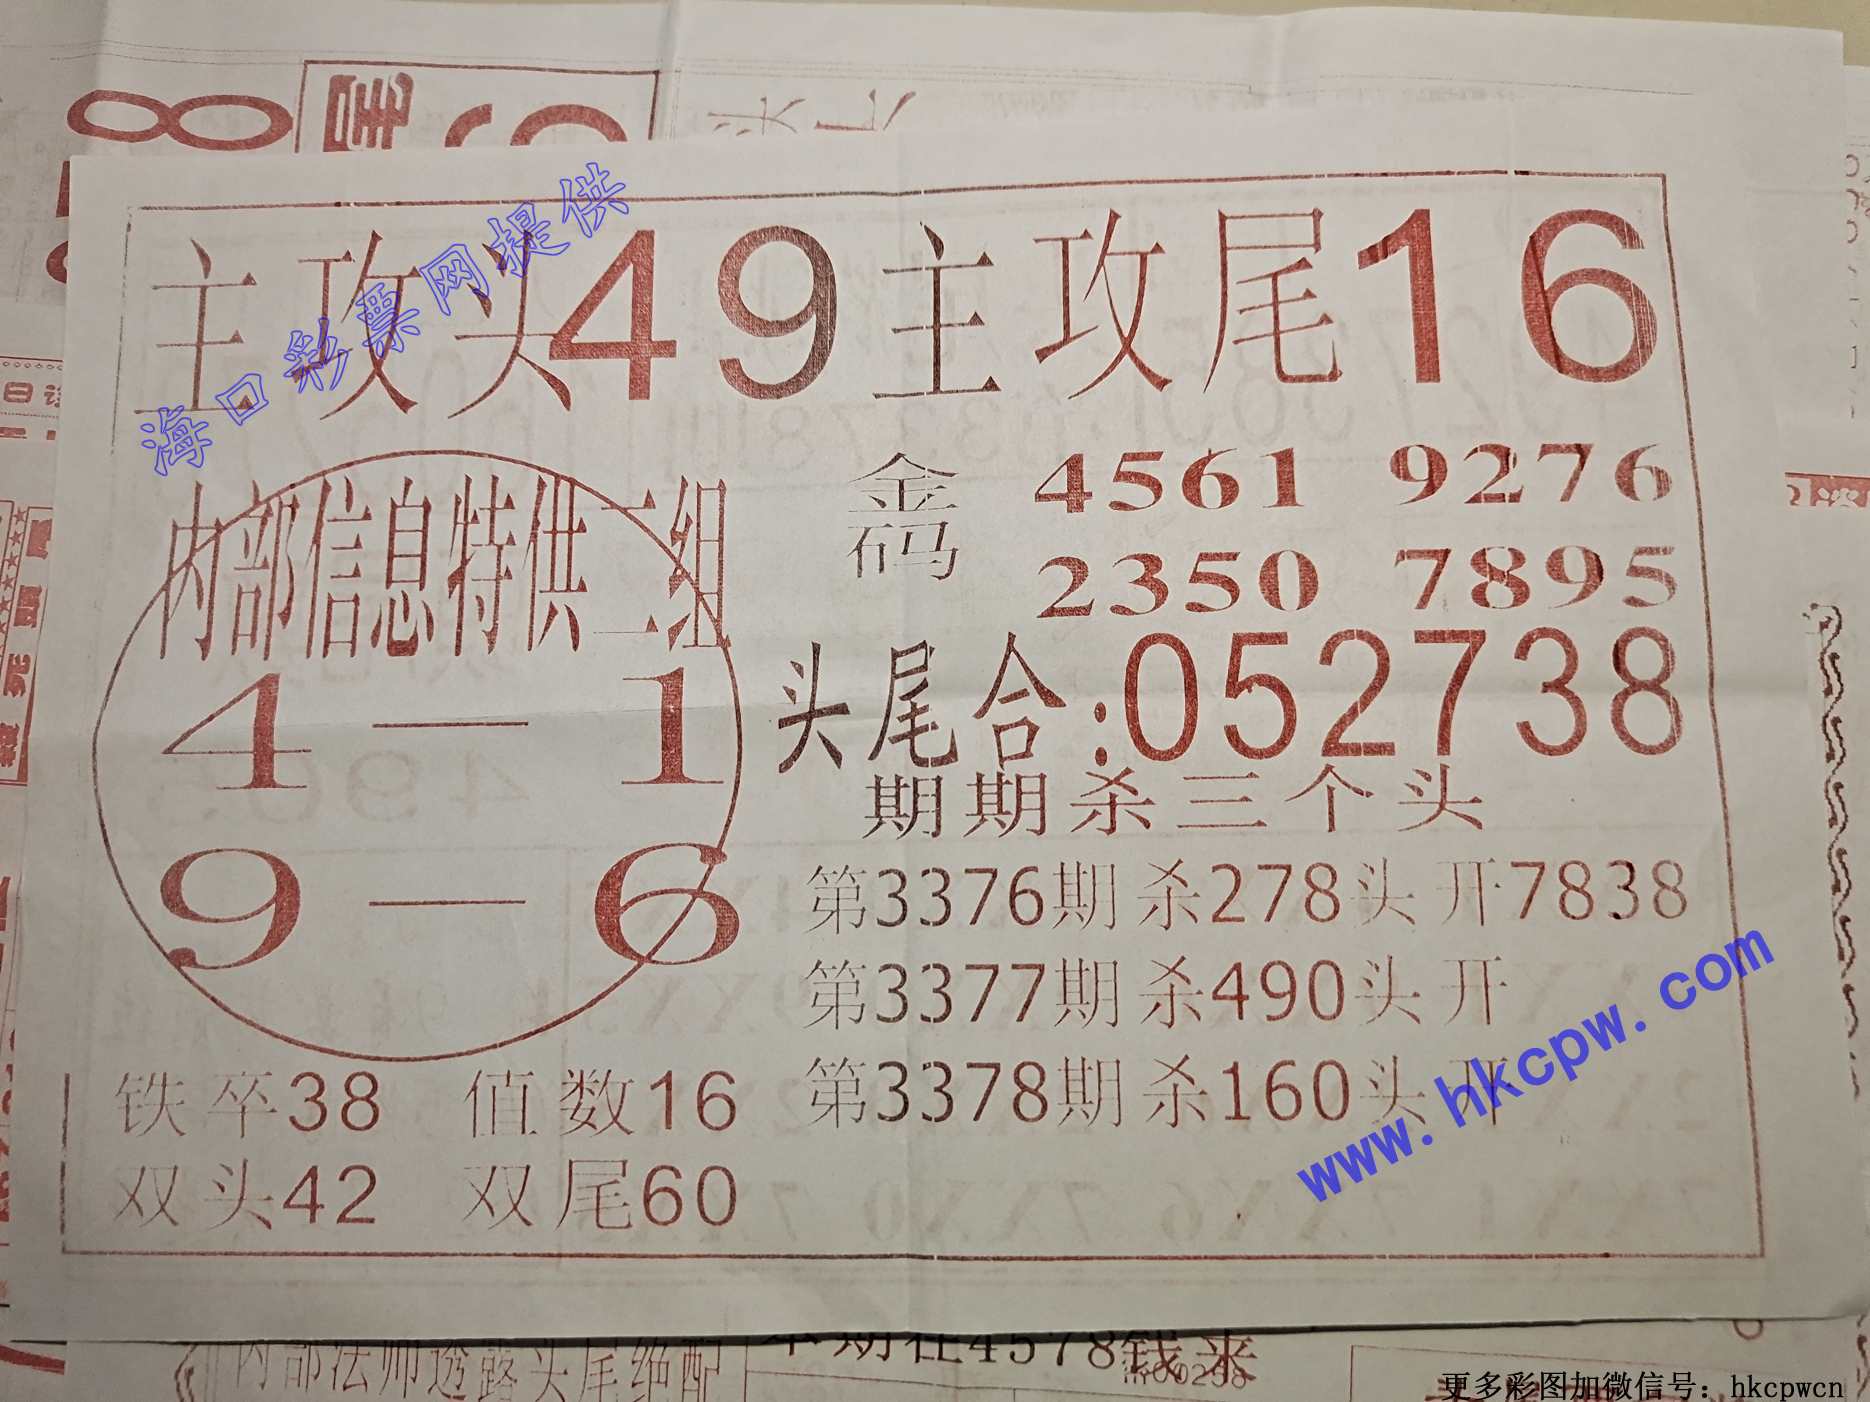 主攻头49主攻尾16
海口彩票网提供
内部信息特供二组
4—1
9—6
金码 4561 9276
2350 7895
头尾合:052738
期期杀三个头
第3376期杀278头开7838
第3377期杀490头开
第3378期杀160头开
铁卒38 值数16
双头42 双尾60
www.hkcpw.com
内部法师透露头尾绝配
本期在4578钱来
更多彩图加微信号：hkcpwcn